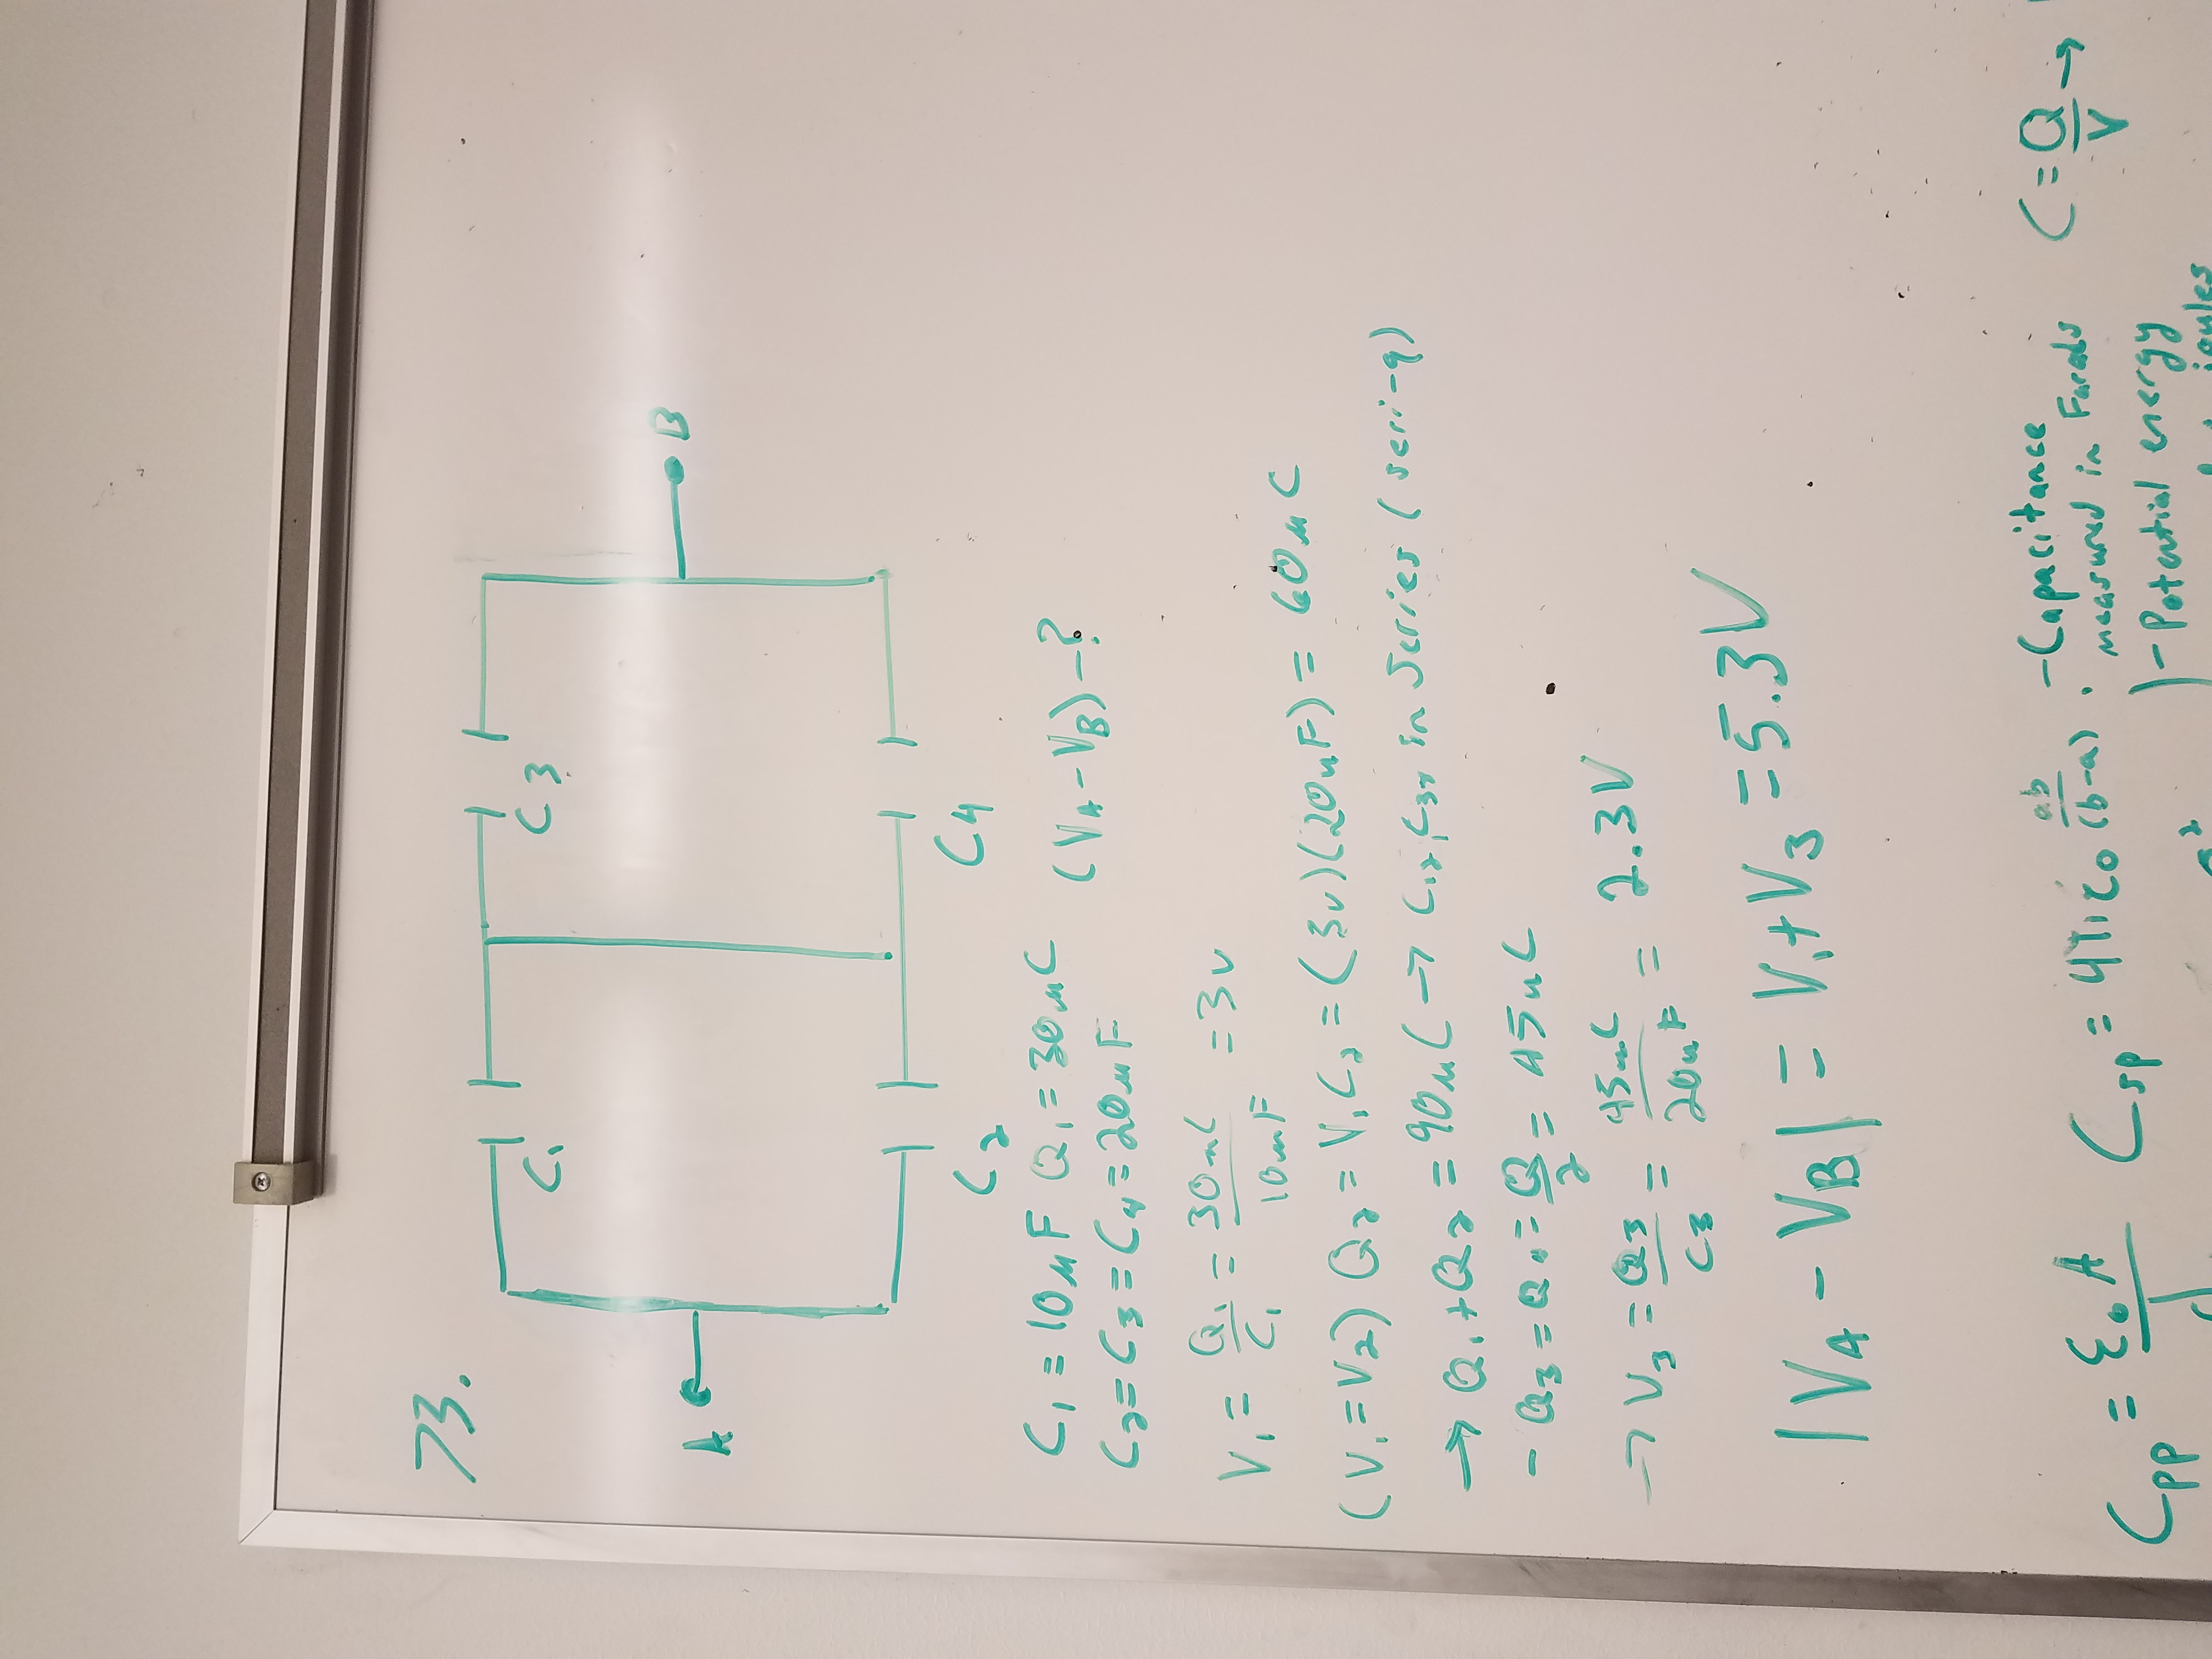 73.
C₁ C₃
A B
C₂ C₄
C₁ = 10μF Q₁ = 30μC (V_A - V_B) - ?
C₂ = C₃ = C₄ = 20μF
V₁ = Q₁/C₁ = 30μC/10μF = 3v
(V₁ = V₂) Q₂ = V₁C₂ = (3v)(20μF) = 60μC
→ Q₁ + Q₂ = 90μC → C₁₂, in Series (seri-q)
- Q₃ = Q/2 = 45μC
→ V₃ = Q₃/C₃ = 45μC/20μF = 2.3V
|V_A - V_B| = V₁ + V₃ = 5.3V
C_pp = ε₀A/d C_sp = 4πε₀ ab/(b-a) - Capacitance C = Q/V →
measured in Farads
- Potential energy
joules